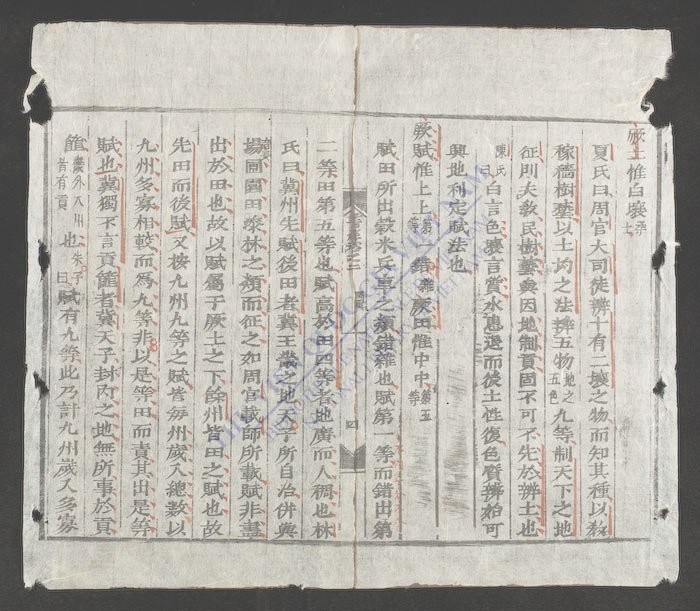 厥土惟白壤柔土
夏氏曰周官大司徒辨十有二壤之物而知其種以教
稼穡樹藝以土均之法辨五物地之五色九等制天下之地
征則夫教民樹藝與因地制貢固不可不先於辨土也
陳氏曰白言色壤言質水患退而後土性復色質辨始可
興地利定賦法也
厥賦惟上上第一等錯雜厥田惟中中第五等
賦田所出穀米兵車之類錯雜也賦第一等而錯出第
二等田第五等也賦高於田四等者地廣而人稠也林
氏曰冀州先賦後田者冀王畿之地天子所自治併與
場圃園田漆林之類而征之如周官載師所載賦非盡
出於田也故以賦屬于厥土之下餘州皆田之賦也故
先田而後賦又按九州九等之賦皆每州歲入總數以
九州多寡相較而為九等非以是等田而責其出是等
賦也冀獨不言貢篚者冀天子封內之地無所事於貢
篚畿外八州皆有貢也朱子曰賦有九等此乃計九州歲入多寡